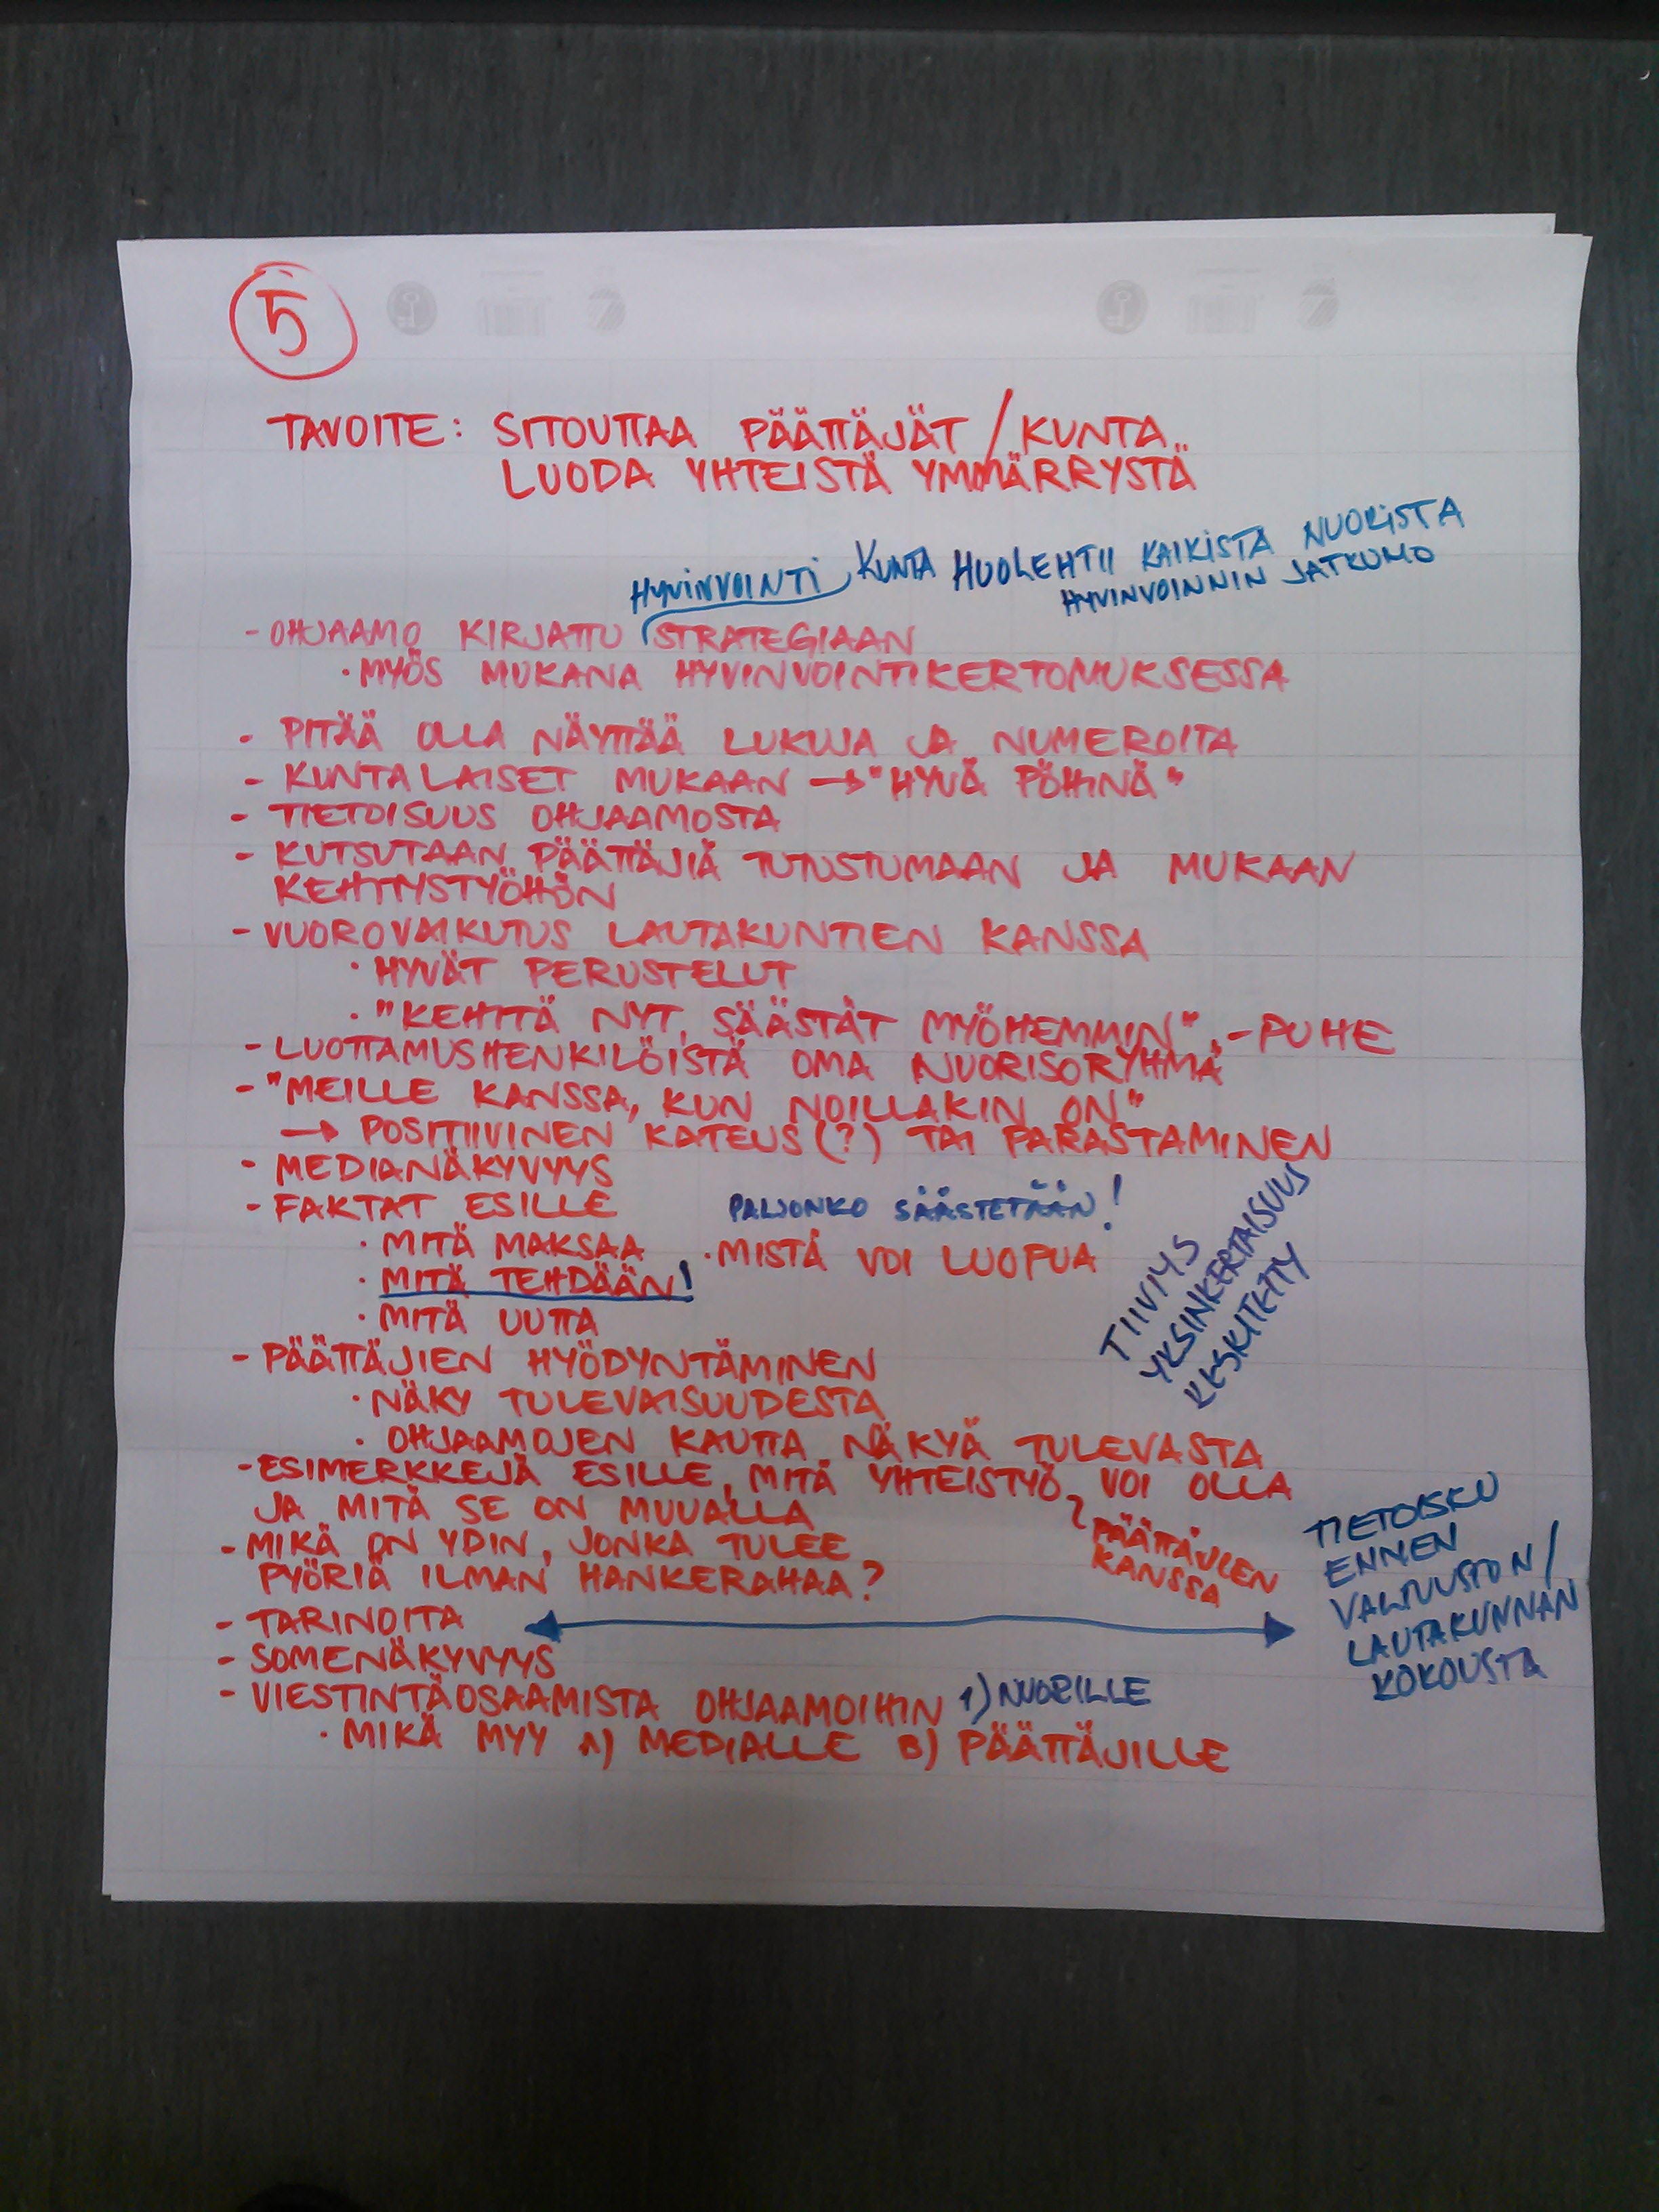 5
TAVOITE: SITOUTTAA PÄÄTTÄJÄT / KUNTA
LUODA YHTEISTÄ YMMÄRRYSTÄ
HYVINVOINTI
KUNTA HUOLEHTII KAIKISTA NUORISTA
HYVINVOINNIN JATKUMO
- OHJAAMO KIRJATTU STRATEGIAAN
· MYÖS MUKANA HYVINVOINTIKERTOMUKSESSA
- PITÄÄ OLLA NÄYTTÄÄ LUKUJA JA NUMEROITA
- KUNTALAISET MUKAAN → "HYVÄ PÖHINÄ"
- TIETOISUUS OHJAAMOSTA
- KUTSUTAAN PÄÄTTÄJIÄ TUTUSTUMAAN JA MUKAAN
KEHITYSTYÖHÖN
- VUOROVAIKUTUS LAUTAKUNTIEN KANSSA
· HYVÄT PERUSTELUT
· "KEHITÄ NYT, SÄÄSTÄT MYÖHEMMIN" - PUHE
- LUOTTAMUSHENKILÖISTÄ OMA NUORISORYHMÄ
- "MEILLE KANSSA, KUN NOILLAKIN ON"
→ POSITIIVINEN KATEUS (?) TAI PARASTAMINEN
- MEDIANÄKYVYYS
- FAKTAT ESILLE
PALJONKO SÄÄSTETÄÄN!
· MITÄ MAKSAA · MISTÄ VOI LUOPUA
· MITÄ TEHDÄÄN!
· MITÄ UUTTA
TIIVIYS
YKSINKERTAISUUS
KESKITETTY
- PÄÄTTÄJIEN HYÖDYNTÄMINEN
· NÄKY TULEVAISUUDESTA
· OHJAAMOJEN KAUTTA NÄKYÄ TULEVASTA
- ESIMERKKEJÄ ESILLE, MITÄ YHTEISTYÖ VOI OLLA
JA MITÄ SE ON MUUALLA
PÄÄTTÄJIEN
KANSSA
- MIKÄ ON YDIN, JONKA TULEE
PYÖRIÄ ILMAN HANKERAHAA?
- TARINOITA
TIETOISKU
ENNEN
VALTUUSTON /
LAUTAKUNNAN
KOKOUSTA
- SOMENÄKYVYYS
- VIESTINTÄOSAAMISTA OHJAAMOIHIN 1) NUORILLE
· MIKÄ MYY A) MEDIALLE B) PÄÄTTÄJILLE